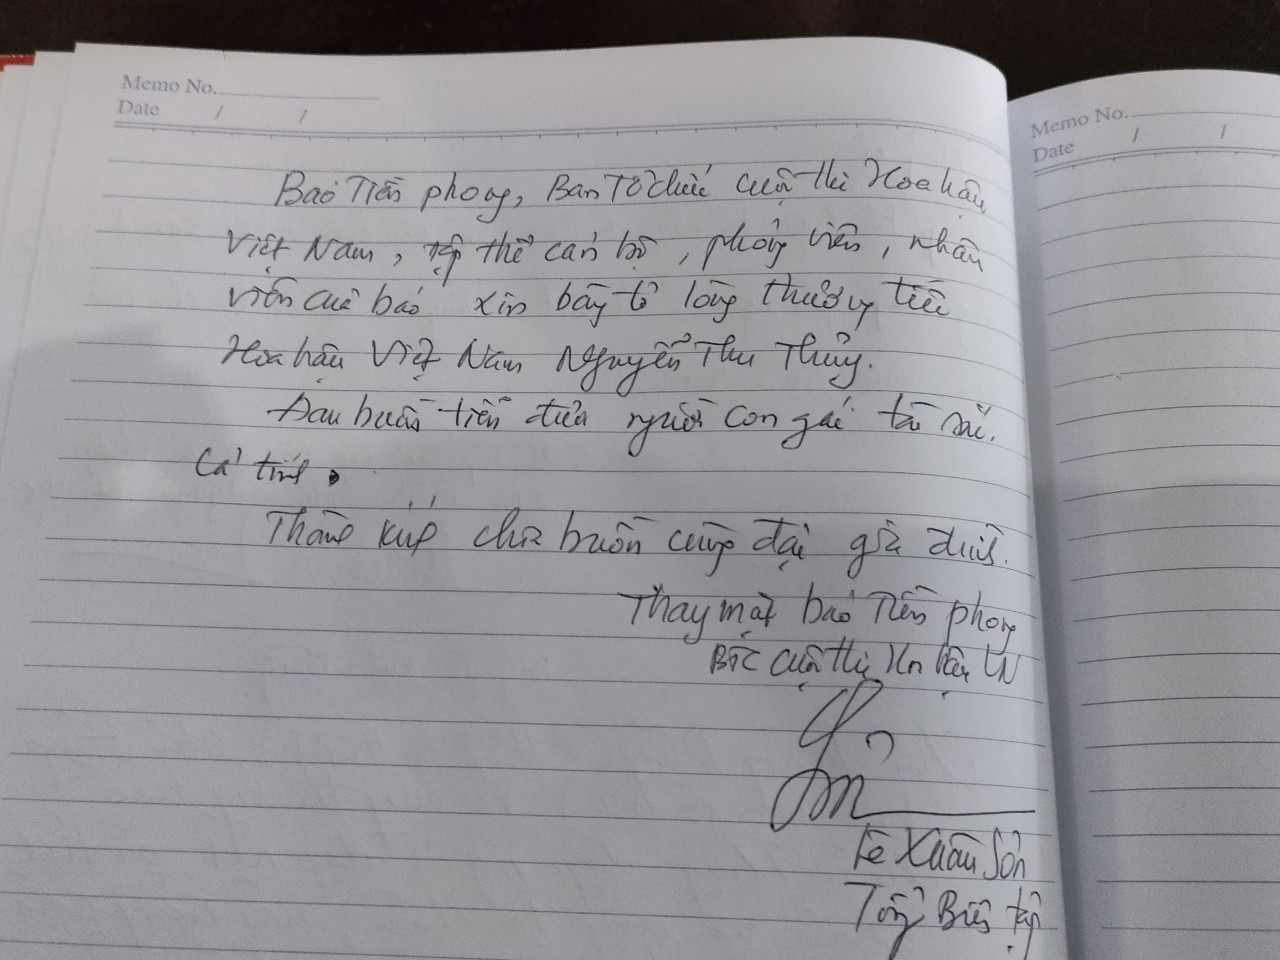 Memo No.
Date / /
Báo Tiền phong, Ban Tổ chức cuộc thi Hoa hậu
Việt Nam, tập thể cán bộ, phóng viên, nhân
viên của báo xin bày tỏ lòng thương tiếc
Hoa hậu Việt Nam Nguyễn Thu Thủy.
Đau buồn tiễn đưa người con gái tài sắc.
Cá tính.
Thành kính chia buồn cùng đại gia đình.
Thay mặt báo Tiền phong
BTC cuộc thi Hoa hậu VN
Lê Xuân Sơn
Tổng Biên tập
Memo No.
Date / /